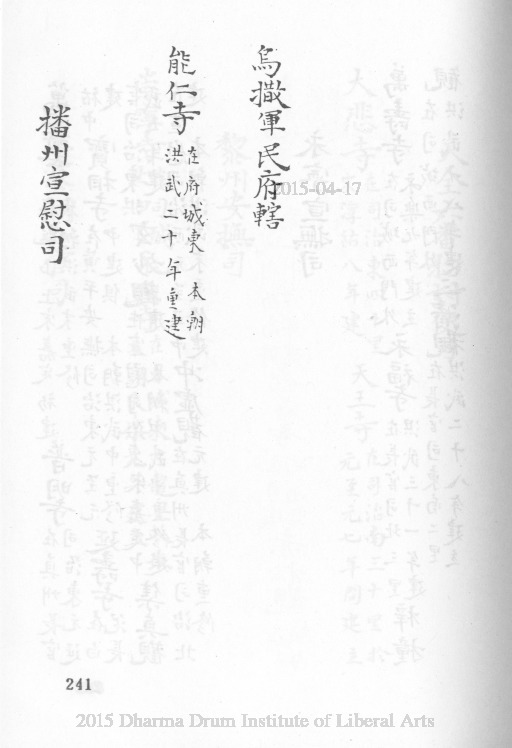 烏撒軍民府轄
能仁寺 在府城東 本朝
洪武二十年重建
播州宣慰司
2015-04-17
241
2015 Dharma Drum Institute of Liberal Arts